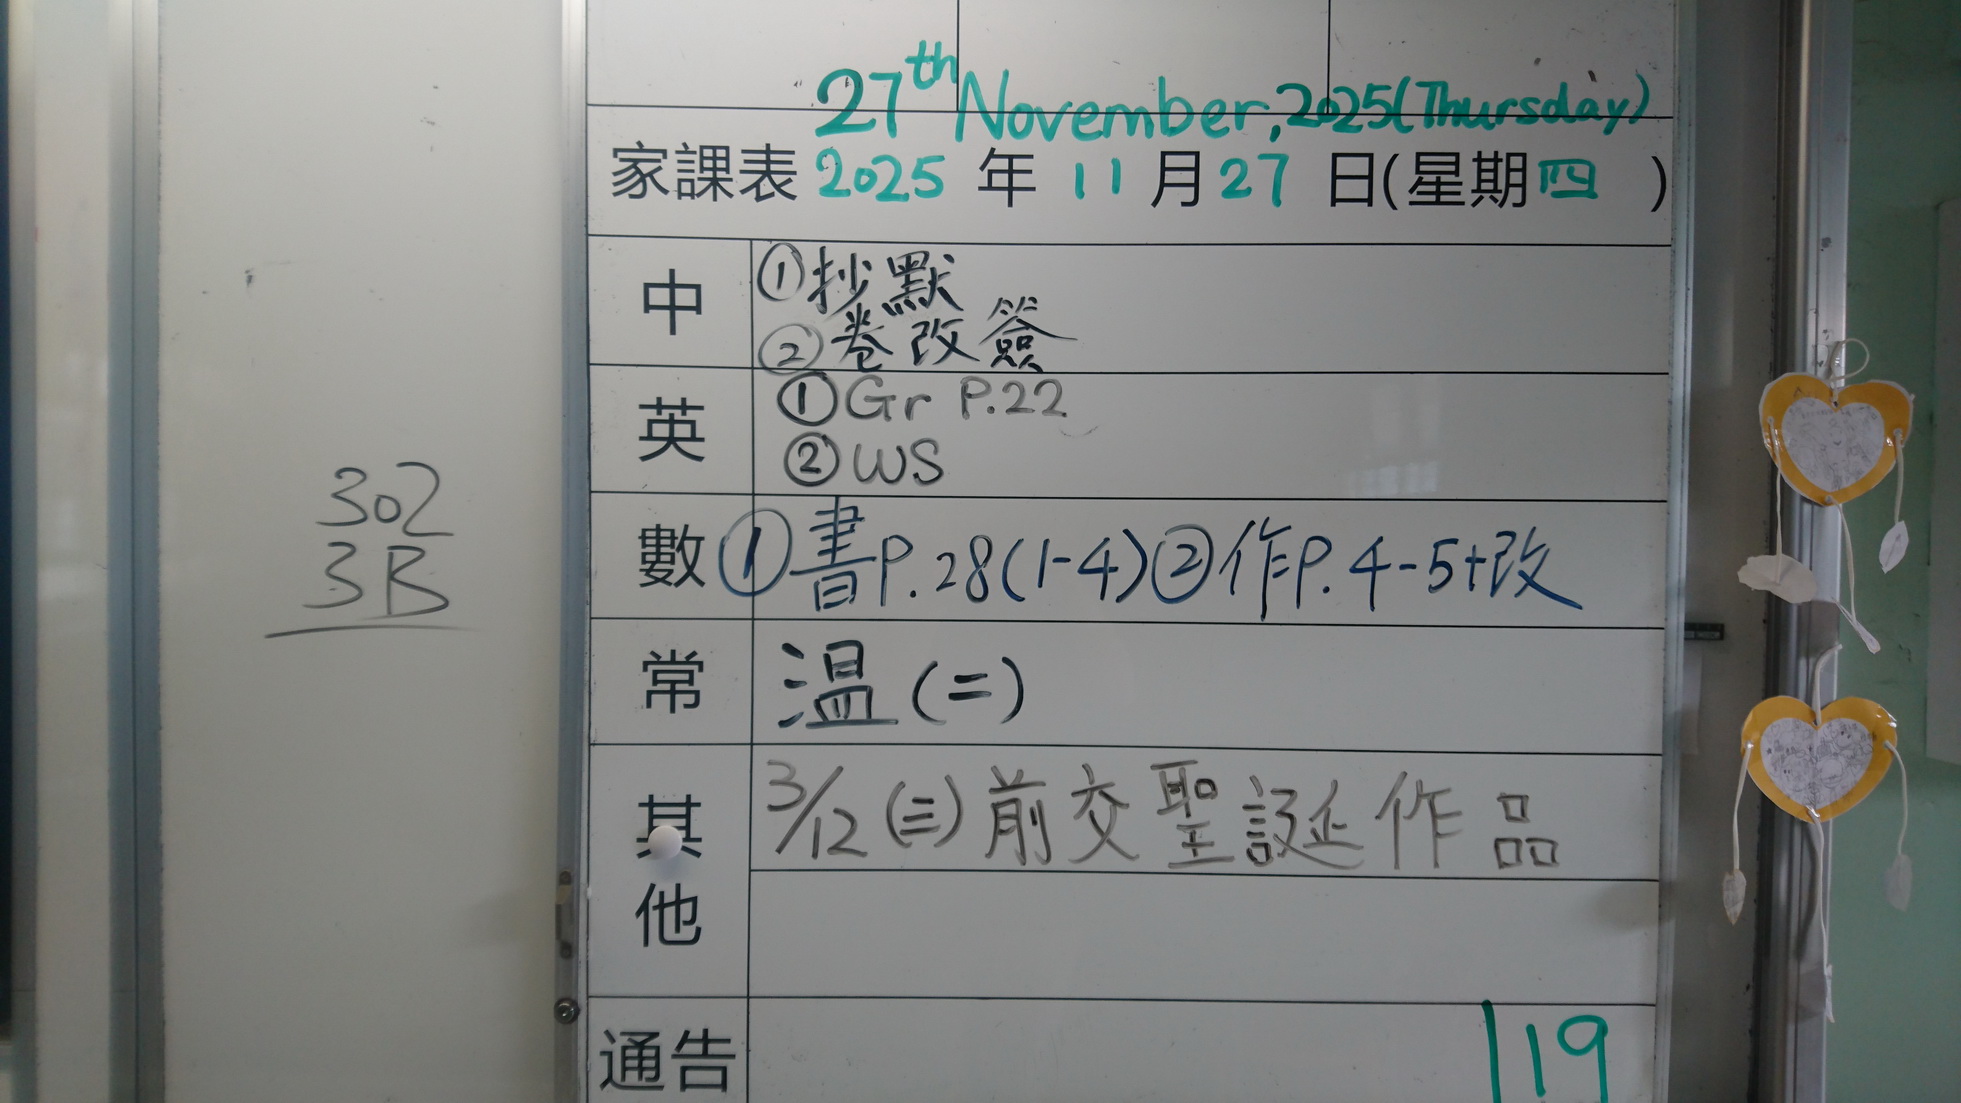 27th November, 2025(Thursday)
家課表 2025 年 11 月 27 日(星期四 )
中 ①抄默
②卷改簽
英 ①Gr P.22
②WS
數 ①書P.28(1-4)②作P.4-5+改
常 温(二)
其他 3/12(三)前交聖誕作品
通告 119
302
3B